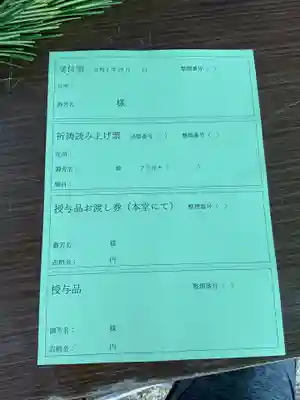 受付票 令和 年 月 日 整理番号( )
住所：
御芳名 様
祈祷読み上げ票 整理番号( )
住所
御芳名
願目：
授与品お渡し券（本堂にて） 整理番号( )
御芳名 様
志納金： 円
授与品 整理番号( )
御芳名： 様
志納金： 円